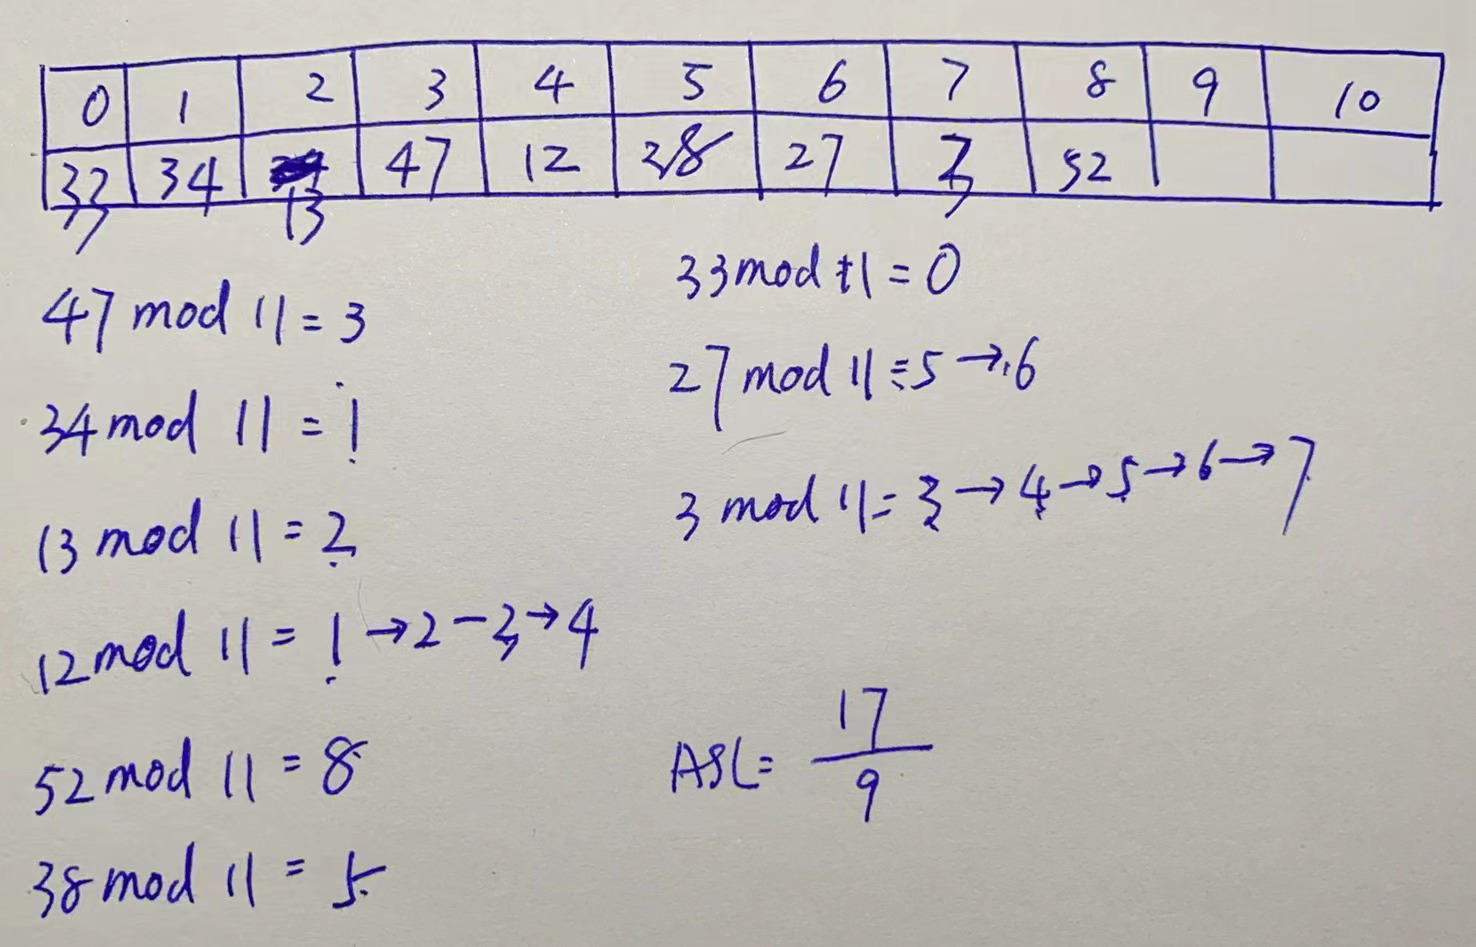 0 1 2 3 4 5 6 7 8 9 10
33 34 13 47 12 38 27 3 52
47 mod 11 = 3
34 mod 11 = 1
13 mod 11 = 2
12 mod 11 = 1 → 2 - 3 → 4
52 mod 11 = 8
38 mod 11 = 5
33 mod 11 = 0
27 mod 11 = 5 → 6
3 mod 11 = 3 → 4 → 5 → 6 → 7
ASL = 17
9